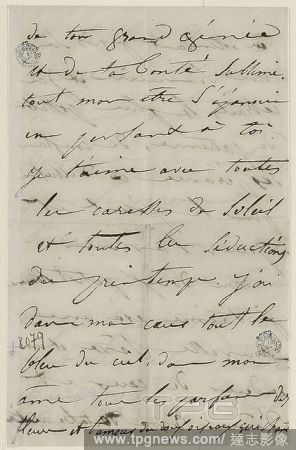 de ton grand génie
et de ta Bonté Sublime.
tout mon être s'épanouie
en pensant à toi
je t'aime avec toutes
les caresses du Soleil
et toutes les Séductions
du printemps. j'ai
dans mon cœur tout le
bleu du ciel, dans mon
âme tous les parfums des
fleurs et l'amour
18079
www.tpgnews.com / 達志影像